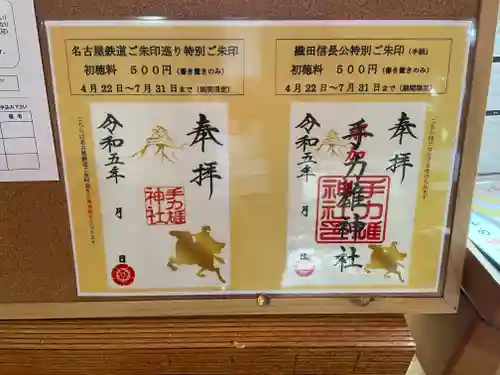 名古屋鉄道ご朱印巡り特別ご朱印
初穂料　５００円（書き置きのみ）
４月２２日～７月３１日まで（期間限定）
奉拝
令和五年　月　日
手力雄
神社
織田信長公特別ご朱印（手続）
初穂料　５００円（書き置きのみ）
４月２２日～７月３１日まで（期間限定）
奉拝
手力雄神社
令和五年　月　日
手力雄
神社印